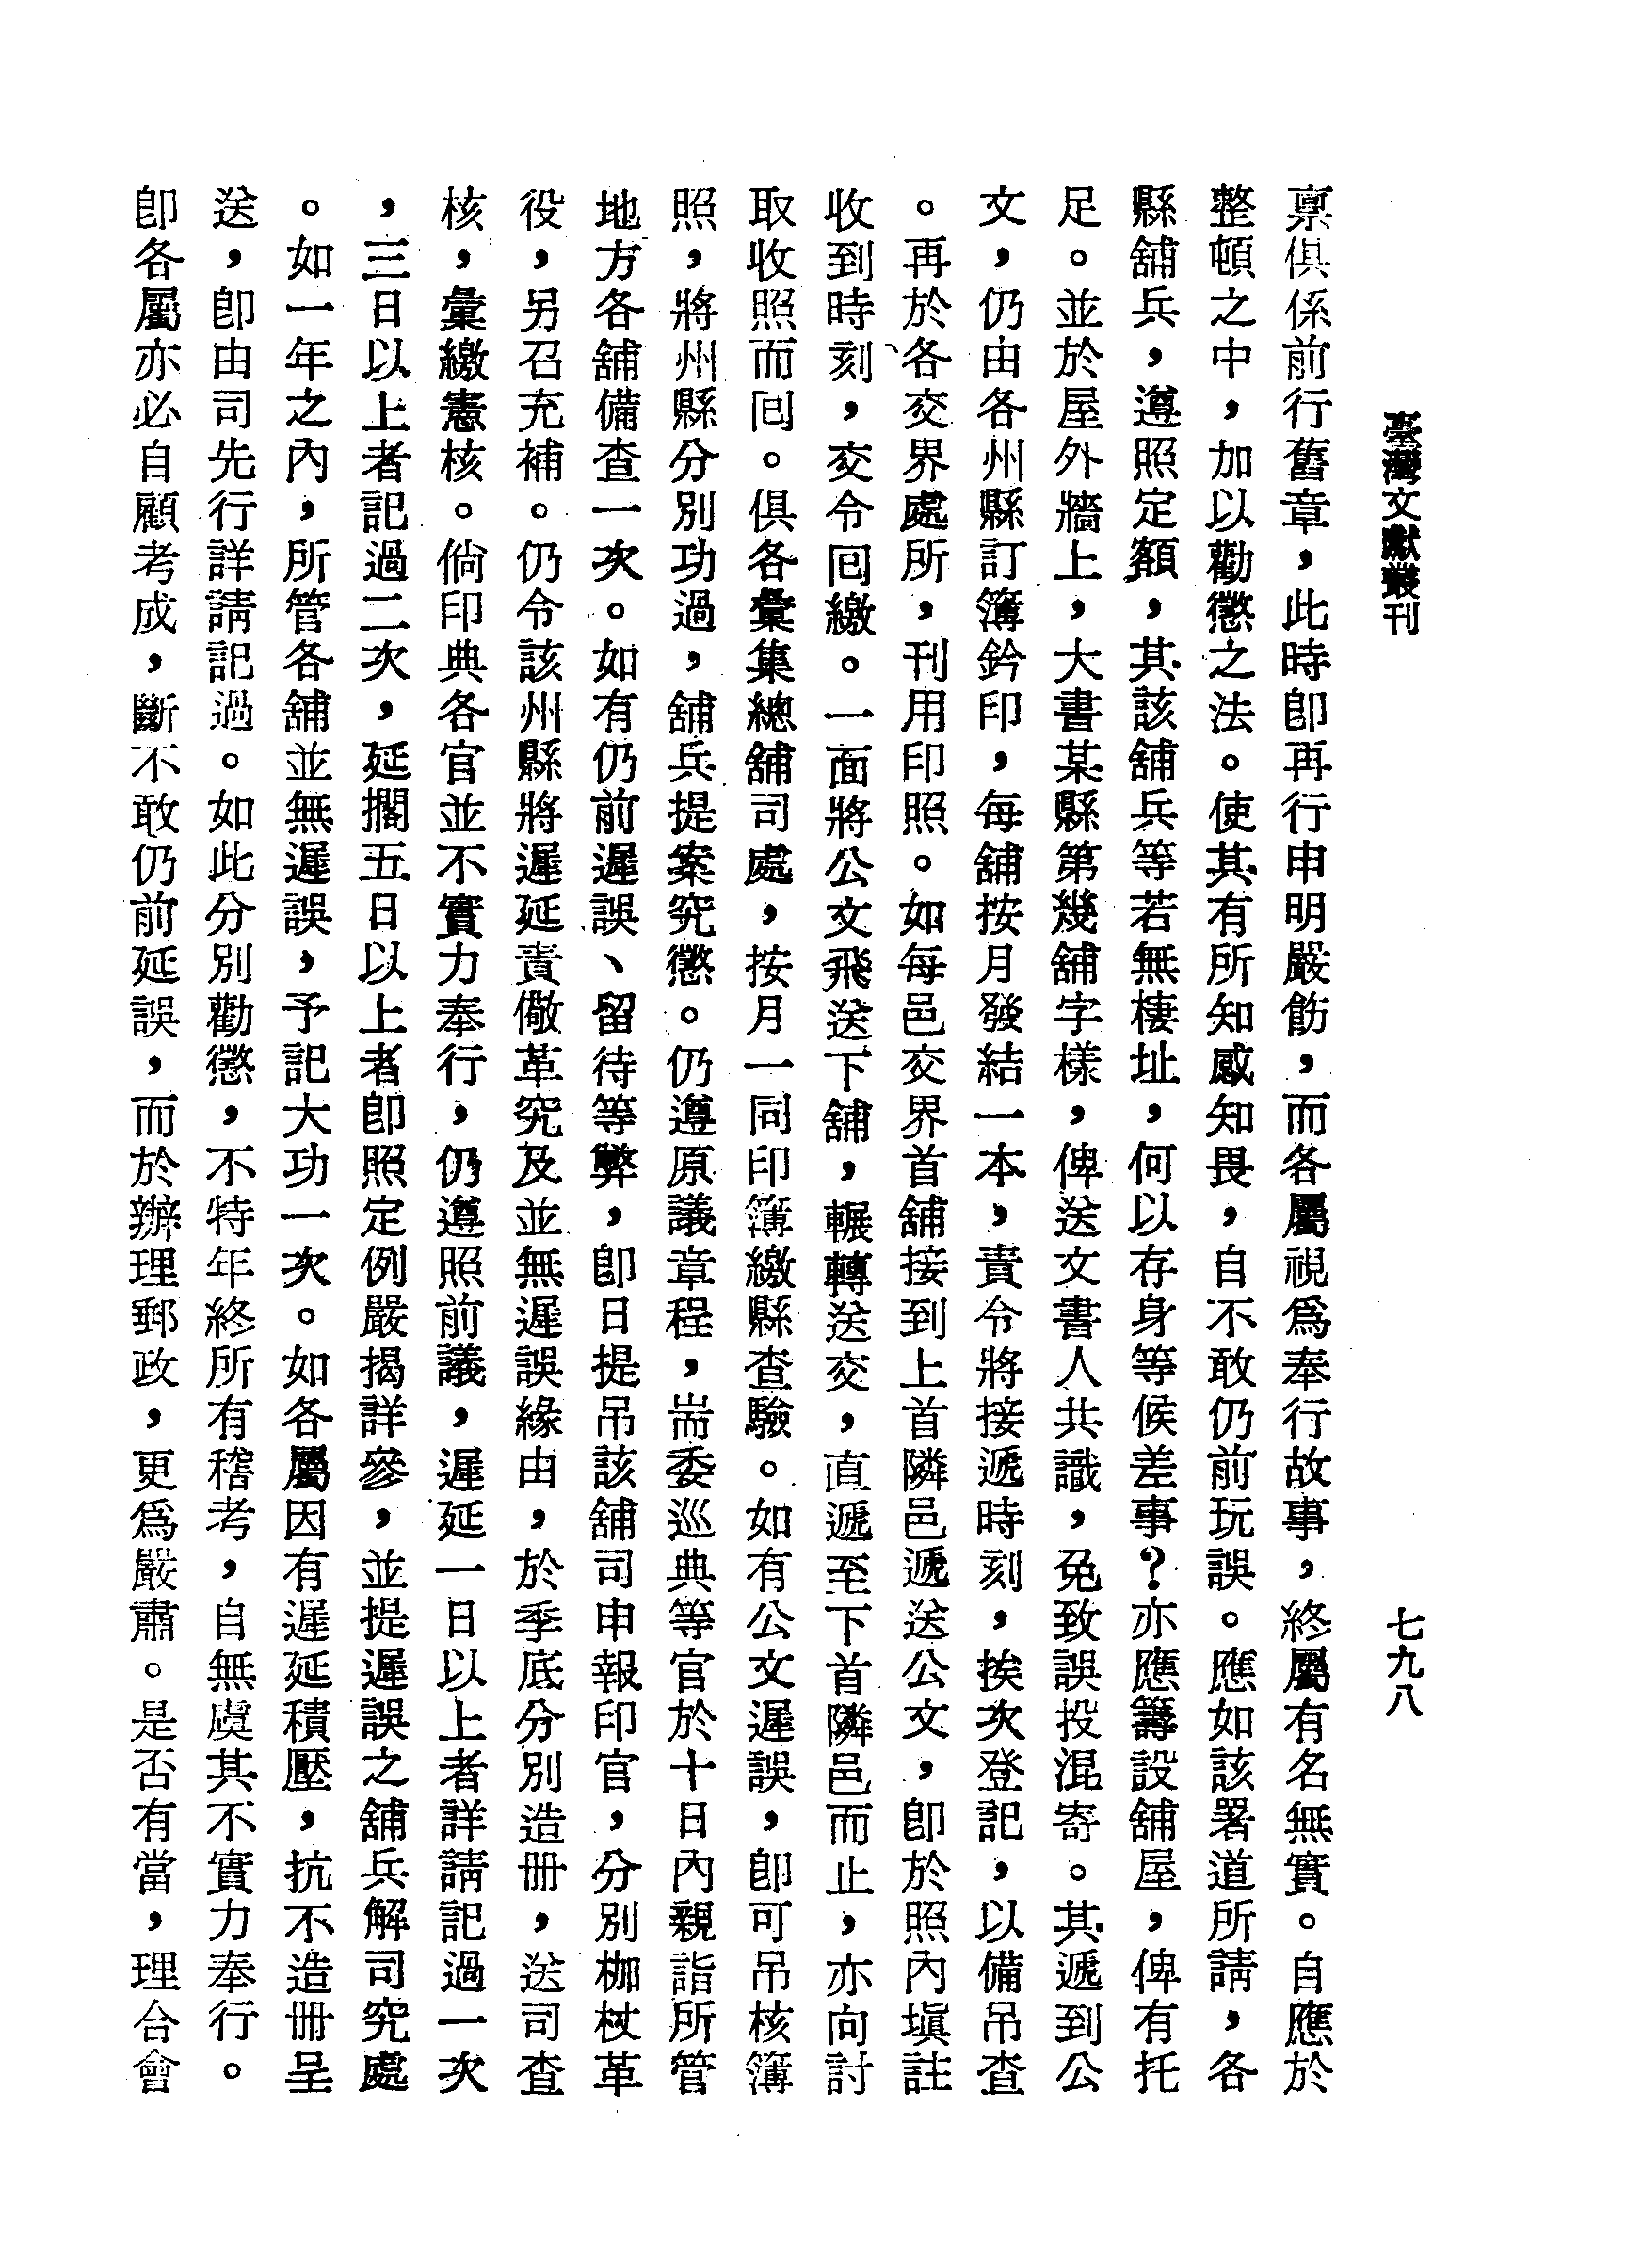 臺灣文獻叢刊
七九八
禀俱係前行舊章，此時卽再行申明嚴飭，而各屬視爲奉行故事，終屬有名無實。自應於
整頓之中，加以勸懲之法。使其有所知感知畏，自不敢仍前玩誤。應如該署道所請，各
縣舖兵，遵照定額，其該舖兵等若無棲址，何以存身等候差事？亦應籌設舖屋，俾有托
足。並於屋外牆上，大書某縣第幾舖字樣，俾送文書人共識，免致誤投混寄。其遞到公
文，仍由各州縣訂簿鈐印，每舖按月發結一本，責令將接遞時刻，挨次登記，以備吊查
。再於各交界處所，刊用印照。如每邑交界首舖接到上首隣邑遞送公文，卽於照內塡註
收到時刻，交令囘繳。一面將公文飛送下舖，輾轉送交，直遞至下首隣邑而止，亦向討
取收照而囘。俱各彙集總舖司處，按月一同印簿繳縣查驗。如有公文遲誤，卽可吊核簿
照，將州縣分別功過，舖兵提案究懲。仍遵原議章程，耑委巡典等官於十日內親詣所管
地方各舖備查一次。如有仍前遲誤、留待等弊，卽日提吊該舖司申報印官，分別枷杖革
役，另召充補。仍令該州縣將遲延責儆革究及並無遲誤緣由，於季底分別造册，送司查
核，彙繳憲核。倘印典各官並不實力奉行，仍遵照前議，遲延一日以上者詳請記過一次
，三日以上者記過二次，延擱五日以上者卽照定例嚴揭詳參，並提遲誤之舖兵解司究處
。如一年之內，所管各舖並無遲誤，予記大功一次。如各屬因有遲延積壓，抗不造册呈
送，卽由司先行詳請記過。如此分別勸懲，不特年終所有稽考，自無虞其不實力奉行。
卽各屬亦必自顧考成，斷不敢仍前延誤，而於辦理郵政，更爲嚴肅。是否有當，理合會